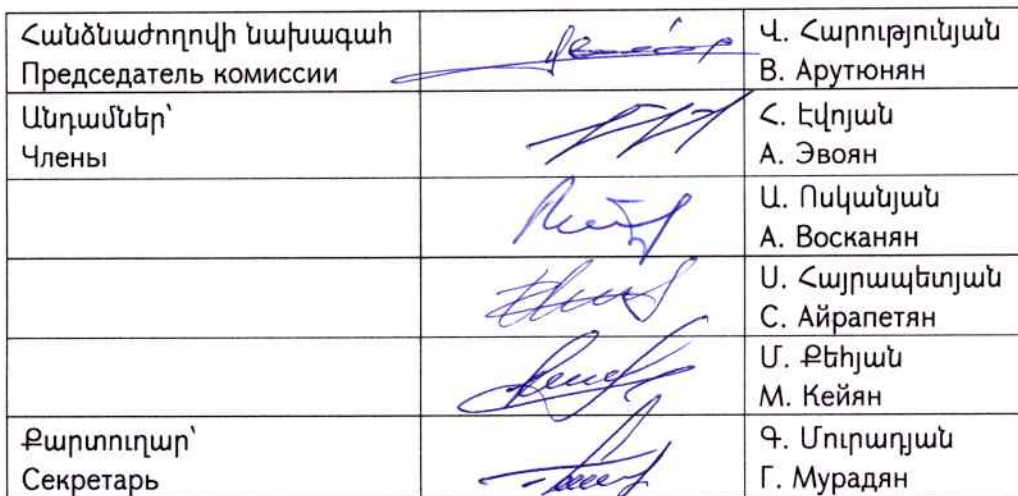 Հանձնաժողովի նախագահ
Председатель комиссии
Վ. Հարությունյան
В. Арутюнян
Անդամներ՝
Члены
Հ. Էվոյան
А. Эвоян
Ա. Ոսկանյան
А. Восканян
Ս. Հայրապետյան
С. Айрапетян
Մ. Քեհյան
М. Кейян
Քարտուղար՝
Секретарь
Գ. Մուրադյան
Г. Мурадян